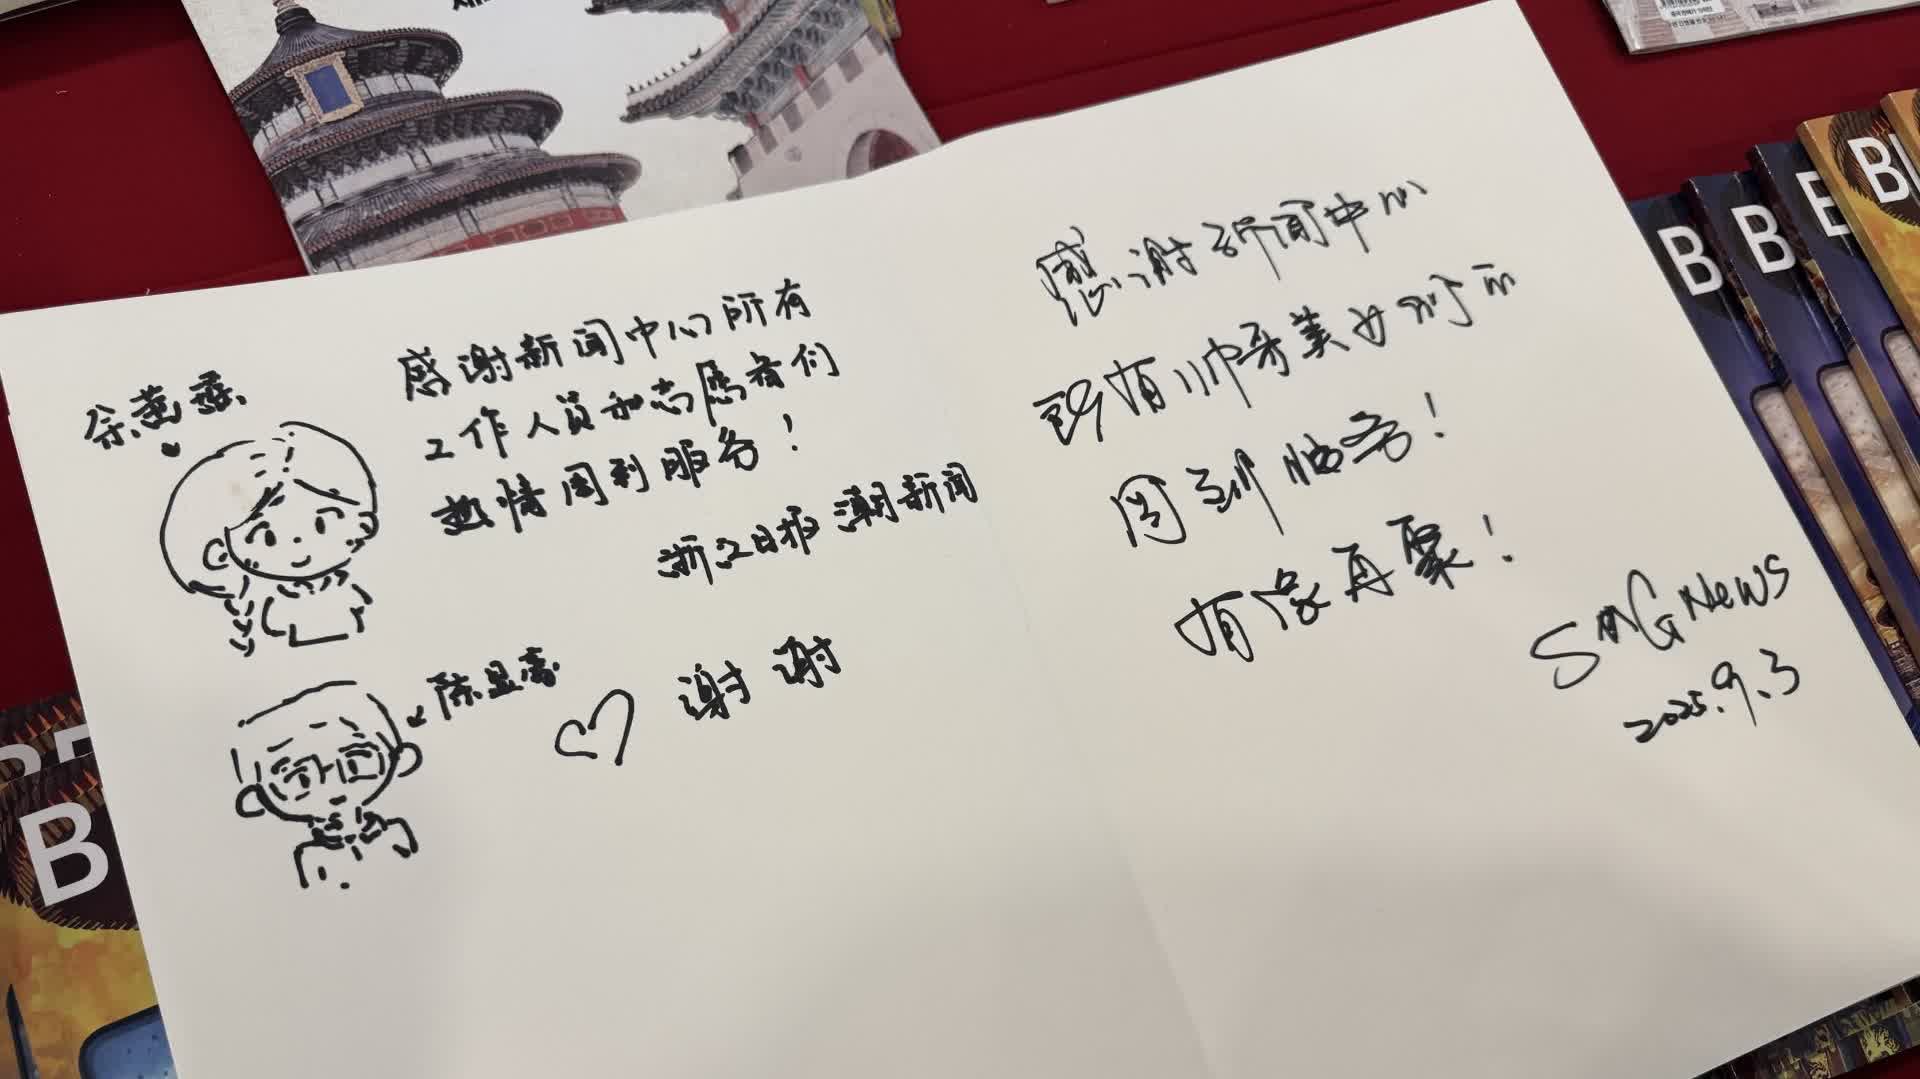 感谢新闻中心所有
工作人员和志愿者们
热情周到服务！
浙江日报 潮新闻
谢谢
陈显
感谢新闻中心
所有帅哥美女们的
周到服务！
有缘再聚！
SMG News
2025.9.3
B
B
B
B